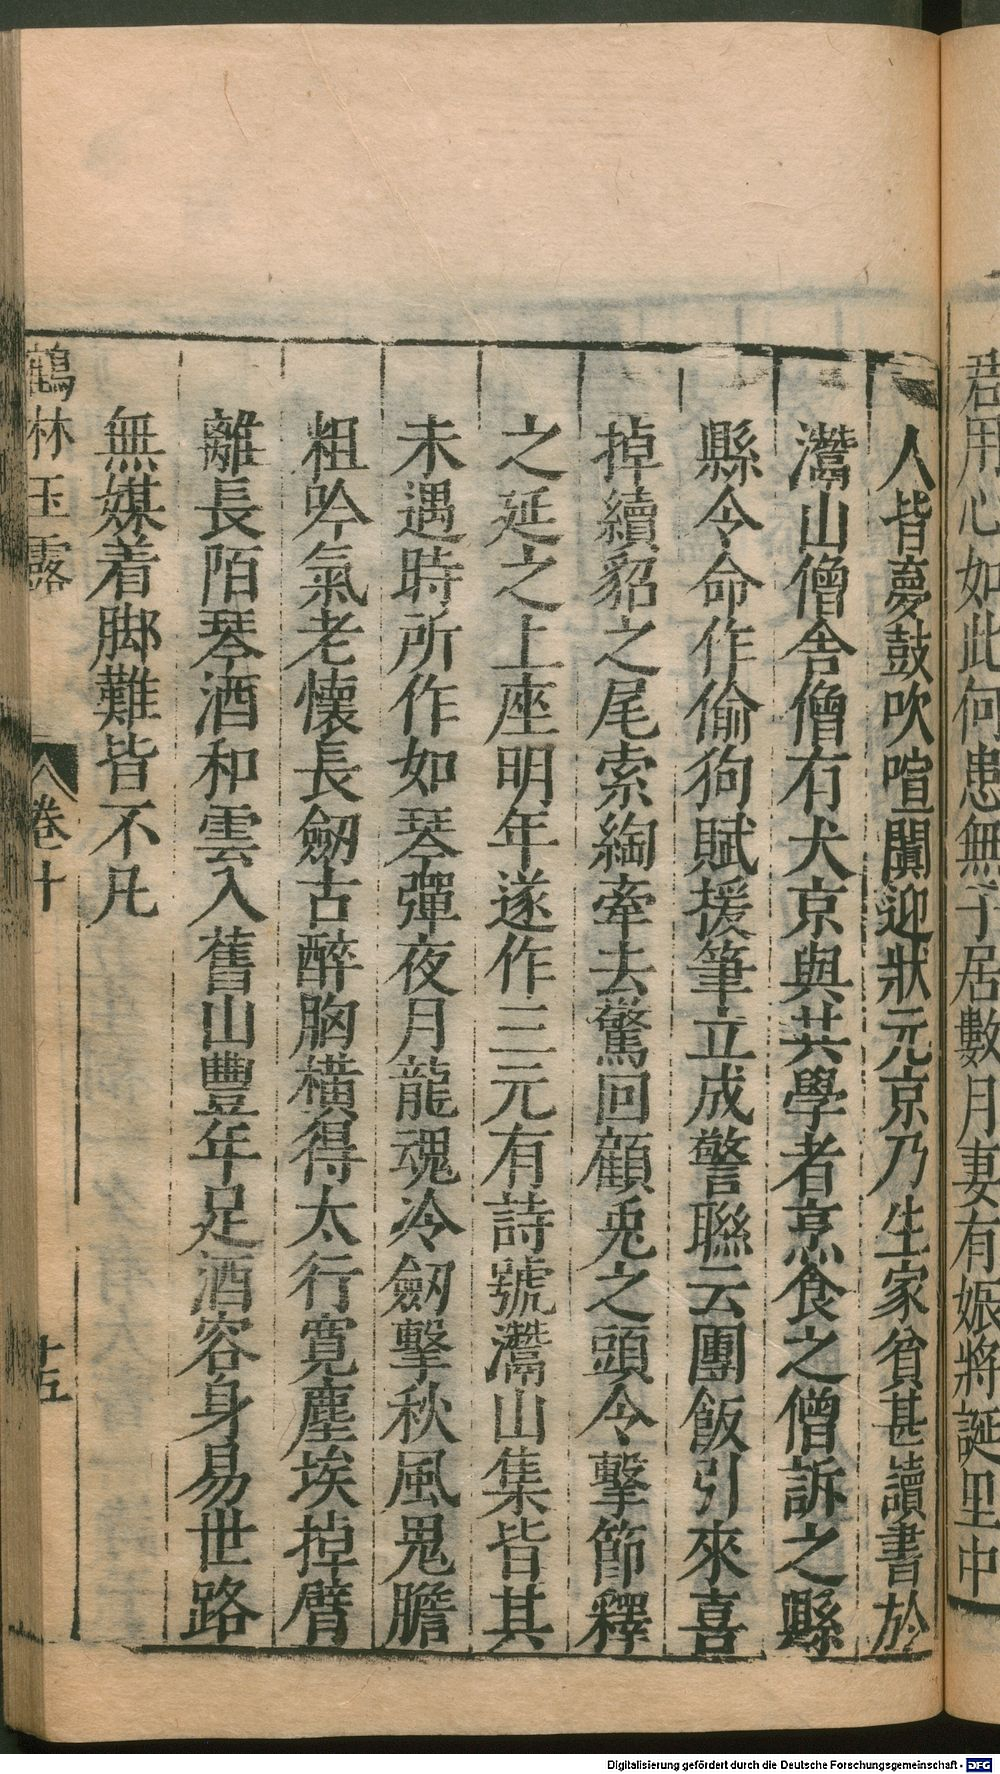 君用心如此何患無子居數月妻有娠將誕里中
人皆夢鼓吹喧闐迎狀元京乃生家貧甚讀書於
灊山僧舍僧有犬京與共學者烹食之僧訴之縣
縣令命作偷狗賦援筆立成警聯云團飯引來喜
掉續貂之尾索綯牽去驚回顧兎之頭令擊節釋
之延之上座明年遂作三元有詩號灊山集皆其
未遇時所作如琴彈夜月龍魂冷劒擊秋風鬼膽
粗吟氣老懷長劒古醉胸橫得太行寛塵埃掉臂
離長陌琴酒和雲入舊山豐年足酒容身易世路
無媒着脚難皆不凡
鶴林玉露
卷十
十五
Digitalisierung gefördert durch die Deutsche Forschungsgemeinschaft - DFG